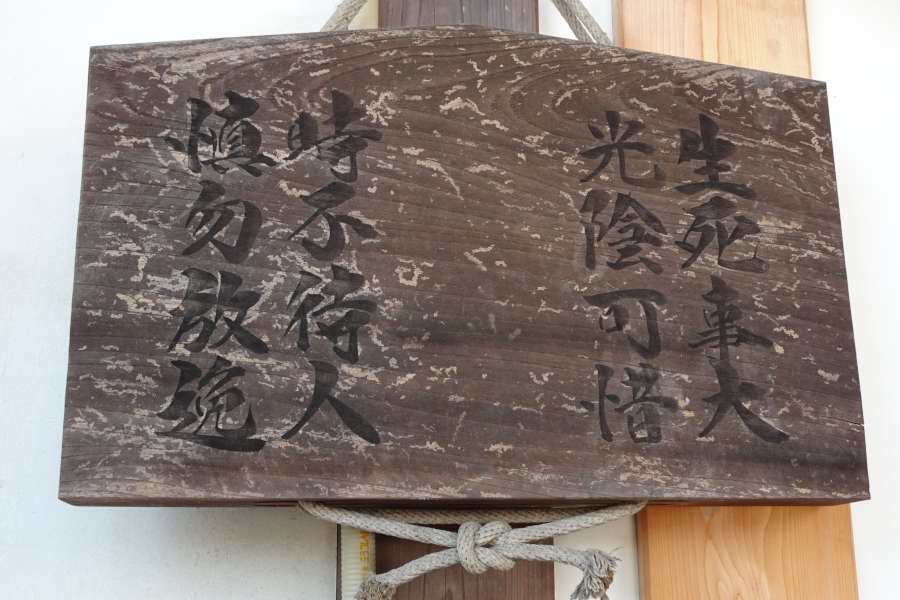 生死事大
光陰可惜
時不待人
慎勿放逸